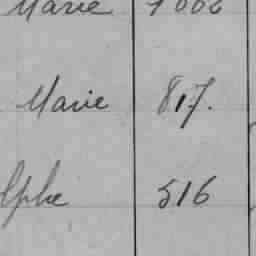 Marie 1 002
Marie 817.
lphe 516